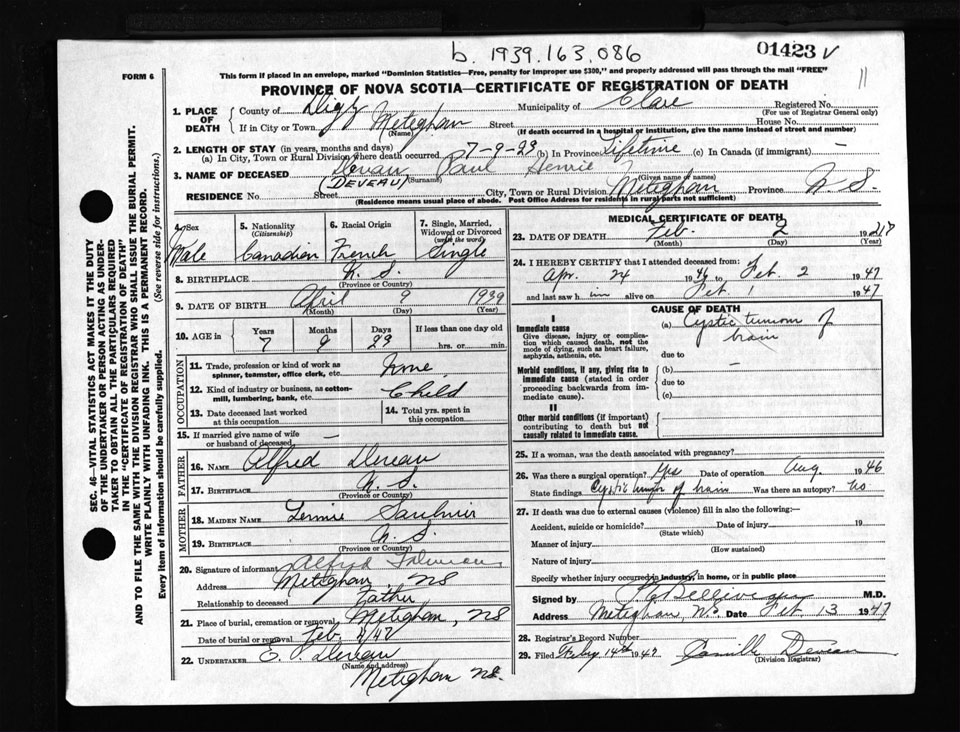 b. 1939.163.086
01423 V
FORM 6
This form if placed in an envelope, marked "Dominion Statistics—Free, penalty for improper use $300," and properly addressed will pass through the mail "FREE"
11
PROVINCE OF NOVA SCOTIA—CERTIFICATE OF REGISTRATION OF DEATH
SEC. 46—VITAL STATISTICS ACT MAKES IT THE DUTY
OF THE UNDERTAKER OR PERSON ACTING AS UNDER-
TAKER TO OBTAIN ALL THE PARTICULARS REQUIRED
IN THE "CERTIFICATE OF REGISTRATION OF DEATH"
AND TO FILE THE SAME WITH THE DIVISION REGISTRAR WHO SHALL ISSUE THE BURIAL PERMIT.
WRITE PLAINLY WITH UNFADING INK. THIS IS A PERMANENT RECORD.
Every item of information should be carefully supplied. (See reverse side for instructions.)
1. PLACE OF DEATH County of Digby Municipality of Clare Registered No.
(For use of Registrar General only)
If in City or Town Meteghan Street House No.
(Name) (If death occurred in a hospital or institution, give the name instead of street and number)
2. LENGTH OF STAY (in years, months and days)
(a) In City, Town or Rural Division where death occurred 7-9-23 (b) In Province Lifetime (c) In Canada (if immigrant) —
3. NAME OF DECEASED Deveau Paul Henrie
(DEVEAU) (Surname) (Given name or names)
RESIDENCE No. Street City, Town or Rural Division Meteghan Province N.S.
(Residence means usual place of abode. Post Office Address for residents in rural parts not sufficient)
4. Sex
Male
5. Nationality
(Citizenship)
Canadian
6. Racial Origin
French
7. Single, Married, Widowed or Divorced
(write the word)
Single
8. BIRTHPLACE N.S.
(Province or Country)
9. DATE OF BIRTH April 9 1939
(Month) (Day) (Year)
10. AGE in Years Months Days If less than one day old
7 9 23 hrs. or min.
OCCUPATION
11. Trade, profession or kind of work as
spinner, teamster, office clerk, etc. None
12. Kind of industry or business, as cotton-
mill, lumbering, bank, etc. Child
13. Date deceased last worked
at this occupation
14. Total yrs. spent in
this occupation
15. If married give name of wife
or husband of deceased —
FATHER
16. NAME Alfred Deveau
17. BIRTHPLACE N.S.
(Province or Country)
MOTHER
18. MAIDEN NAME Saulnier
19. BIRTHPLACE N.S.
(Province or Country)
20. Signature of informant Alfred
Address Meteghan, NS
Relationship to deceased Father
21. Place of burial, cremation or removal Meteghan, NS
Date of burial or removal Feb. 4/47
22. UNDERTAKER Deveau
(Name and address)
Meteghan NS.
MEDICAL CERTIFICATE OF DEATH
23. DATE OF DEATH Feb. 2
(Month) (Day) (Year)
24. I HEREBY CERTIFY that I attended deceased from:
Apr. 24 1946 to Feb 2 1947
and last saw him alive on Feb 1 1947
CAUSE OF DEATH
I
Immediate cause
Give disease, injury or complica-
tion which caused death, not the
mode of dying, such as heart failure,
asphyxia, asthenia, etc.
(a) Cystic tumour of
brain
due to
Morbid conditions, if any, giving rise to
immediate cause (stated in order
proceeding backwards from im-
mediate cause).
(b) —
due to
(c)
II
Other morbid conditions (if important)
contributing to death but not
causally related to immediate cause.
25. If a woman, was the death associated with pregnancy?
26. Was there a surgical operation? Yes Date of operation Aug. 1946
State findings Cystic tumor of brain Was there an autopsy? No
27. If death was due to external causes (violence) fill in also the following:—
Accident, suicide or homicide? Date of injury 19
(State which)
Manner of injury
(How sustained)
Nature of injury
Specify whether injury occurred in industry, in home, or in public place
Signed by Belliveau M.D.
Address Meteghan, N.S. Date Feb 13 1947
28. Registrar's Record Number
29. Filed Feby 14th 1947 Camille Deveau
(Division Registrar)